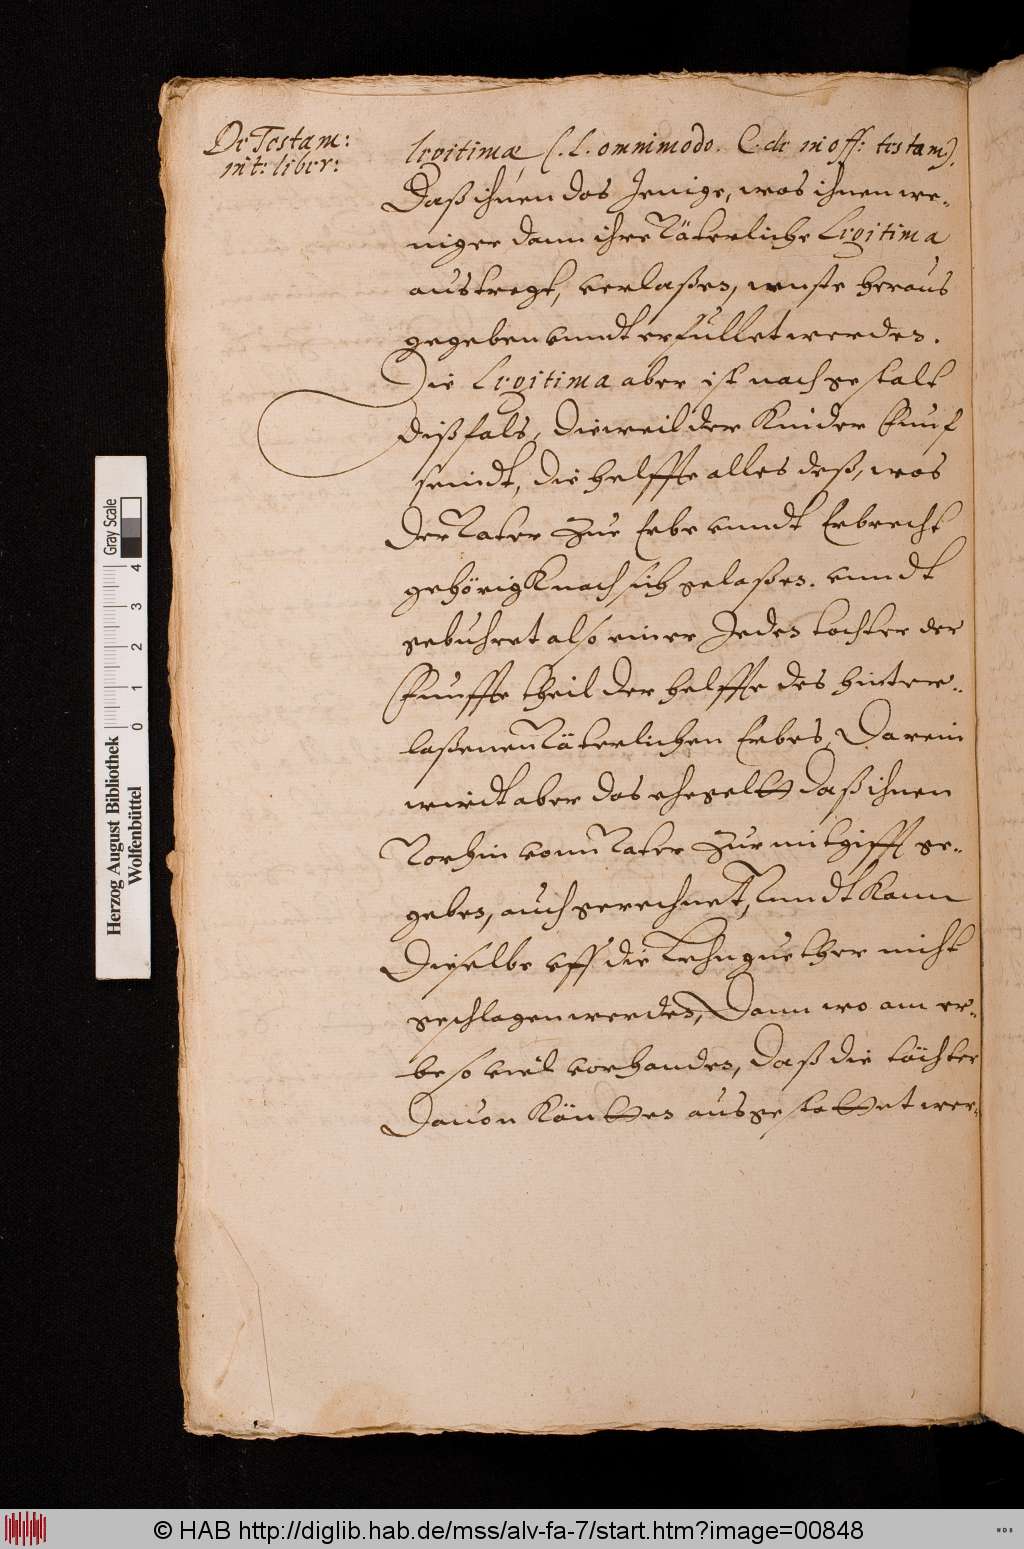 De Testam:
int: liber:
legitimæ (l. omnimodo. C. de inoff: testam),
Daß ihnen das Jenige, was ihnen we-
niger dann ihre Väterliche Legitima
austregt, verlaßen, muste heraus
gegeben vnndt erfullet werden.
Die Legitima aber ist nach gestalt
dißfals, dieweil der Kinder Funf
seindt, die helffte alles deß, was
der Vater zue Erbe vnndt Erbrecht
gehörigk nach sich gelaßen. vnndt
gebuhret also einer Jeden tochter der
Funffte theil der helffte des hinter-
laßenen Väterlichen Erbes, Darein
wirdt aber das ehegelt daß ihnen
Vorhin vom Vater zur mitgifft ge-
geben, auch gerechnet, Vnndt kann
Dieselbe vff die Lehnguether nicht
geschlagen werden, Dann wo am er-
be so viel vorhanden, Daß die töchter
Dauon köntten ausgestattet wer-
Herzog August Bibliothek
Wolfenbüttel
0 1 2 3 4
Gray Scale
© HAB http://diglib.hab.de/mss/alv-fa-7/start.htm?image=00848